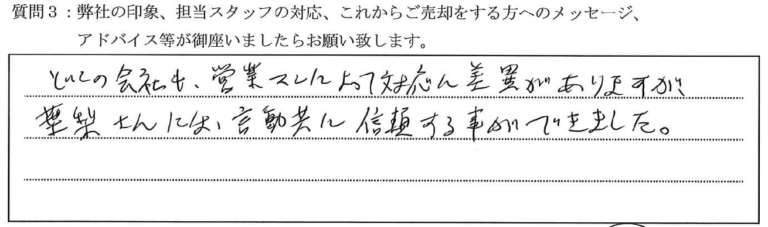 質問3：弊社の印象、担当スタッフの対応、これからご売却をする方へのメッセージ、
アドバイス等が御座いましたらお願い致します。
どこの会社も、営業マンによって対応に差異がありますが、
さんには、言動共に信頼する事ができました。